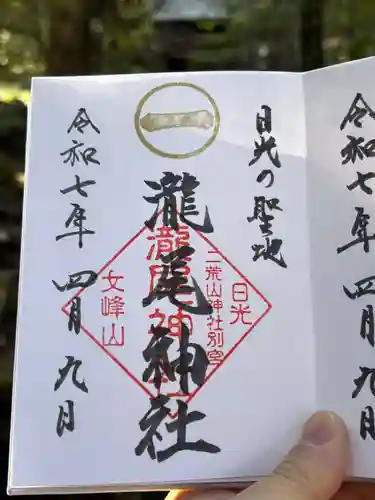 令和七年四月九日
日光の聖地
一
瀧尾神社
日光
二荒山神社別宮
女峰山
令和七年四月九日